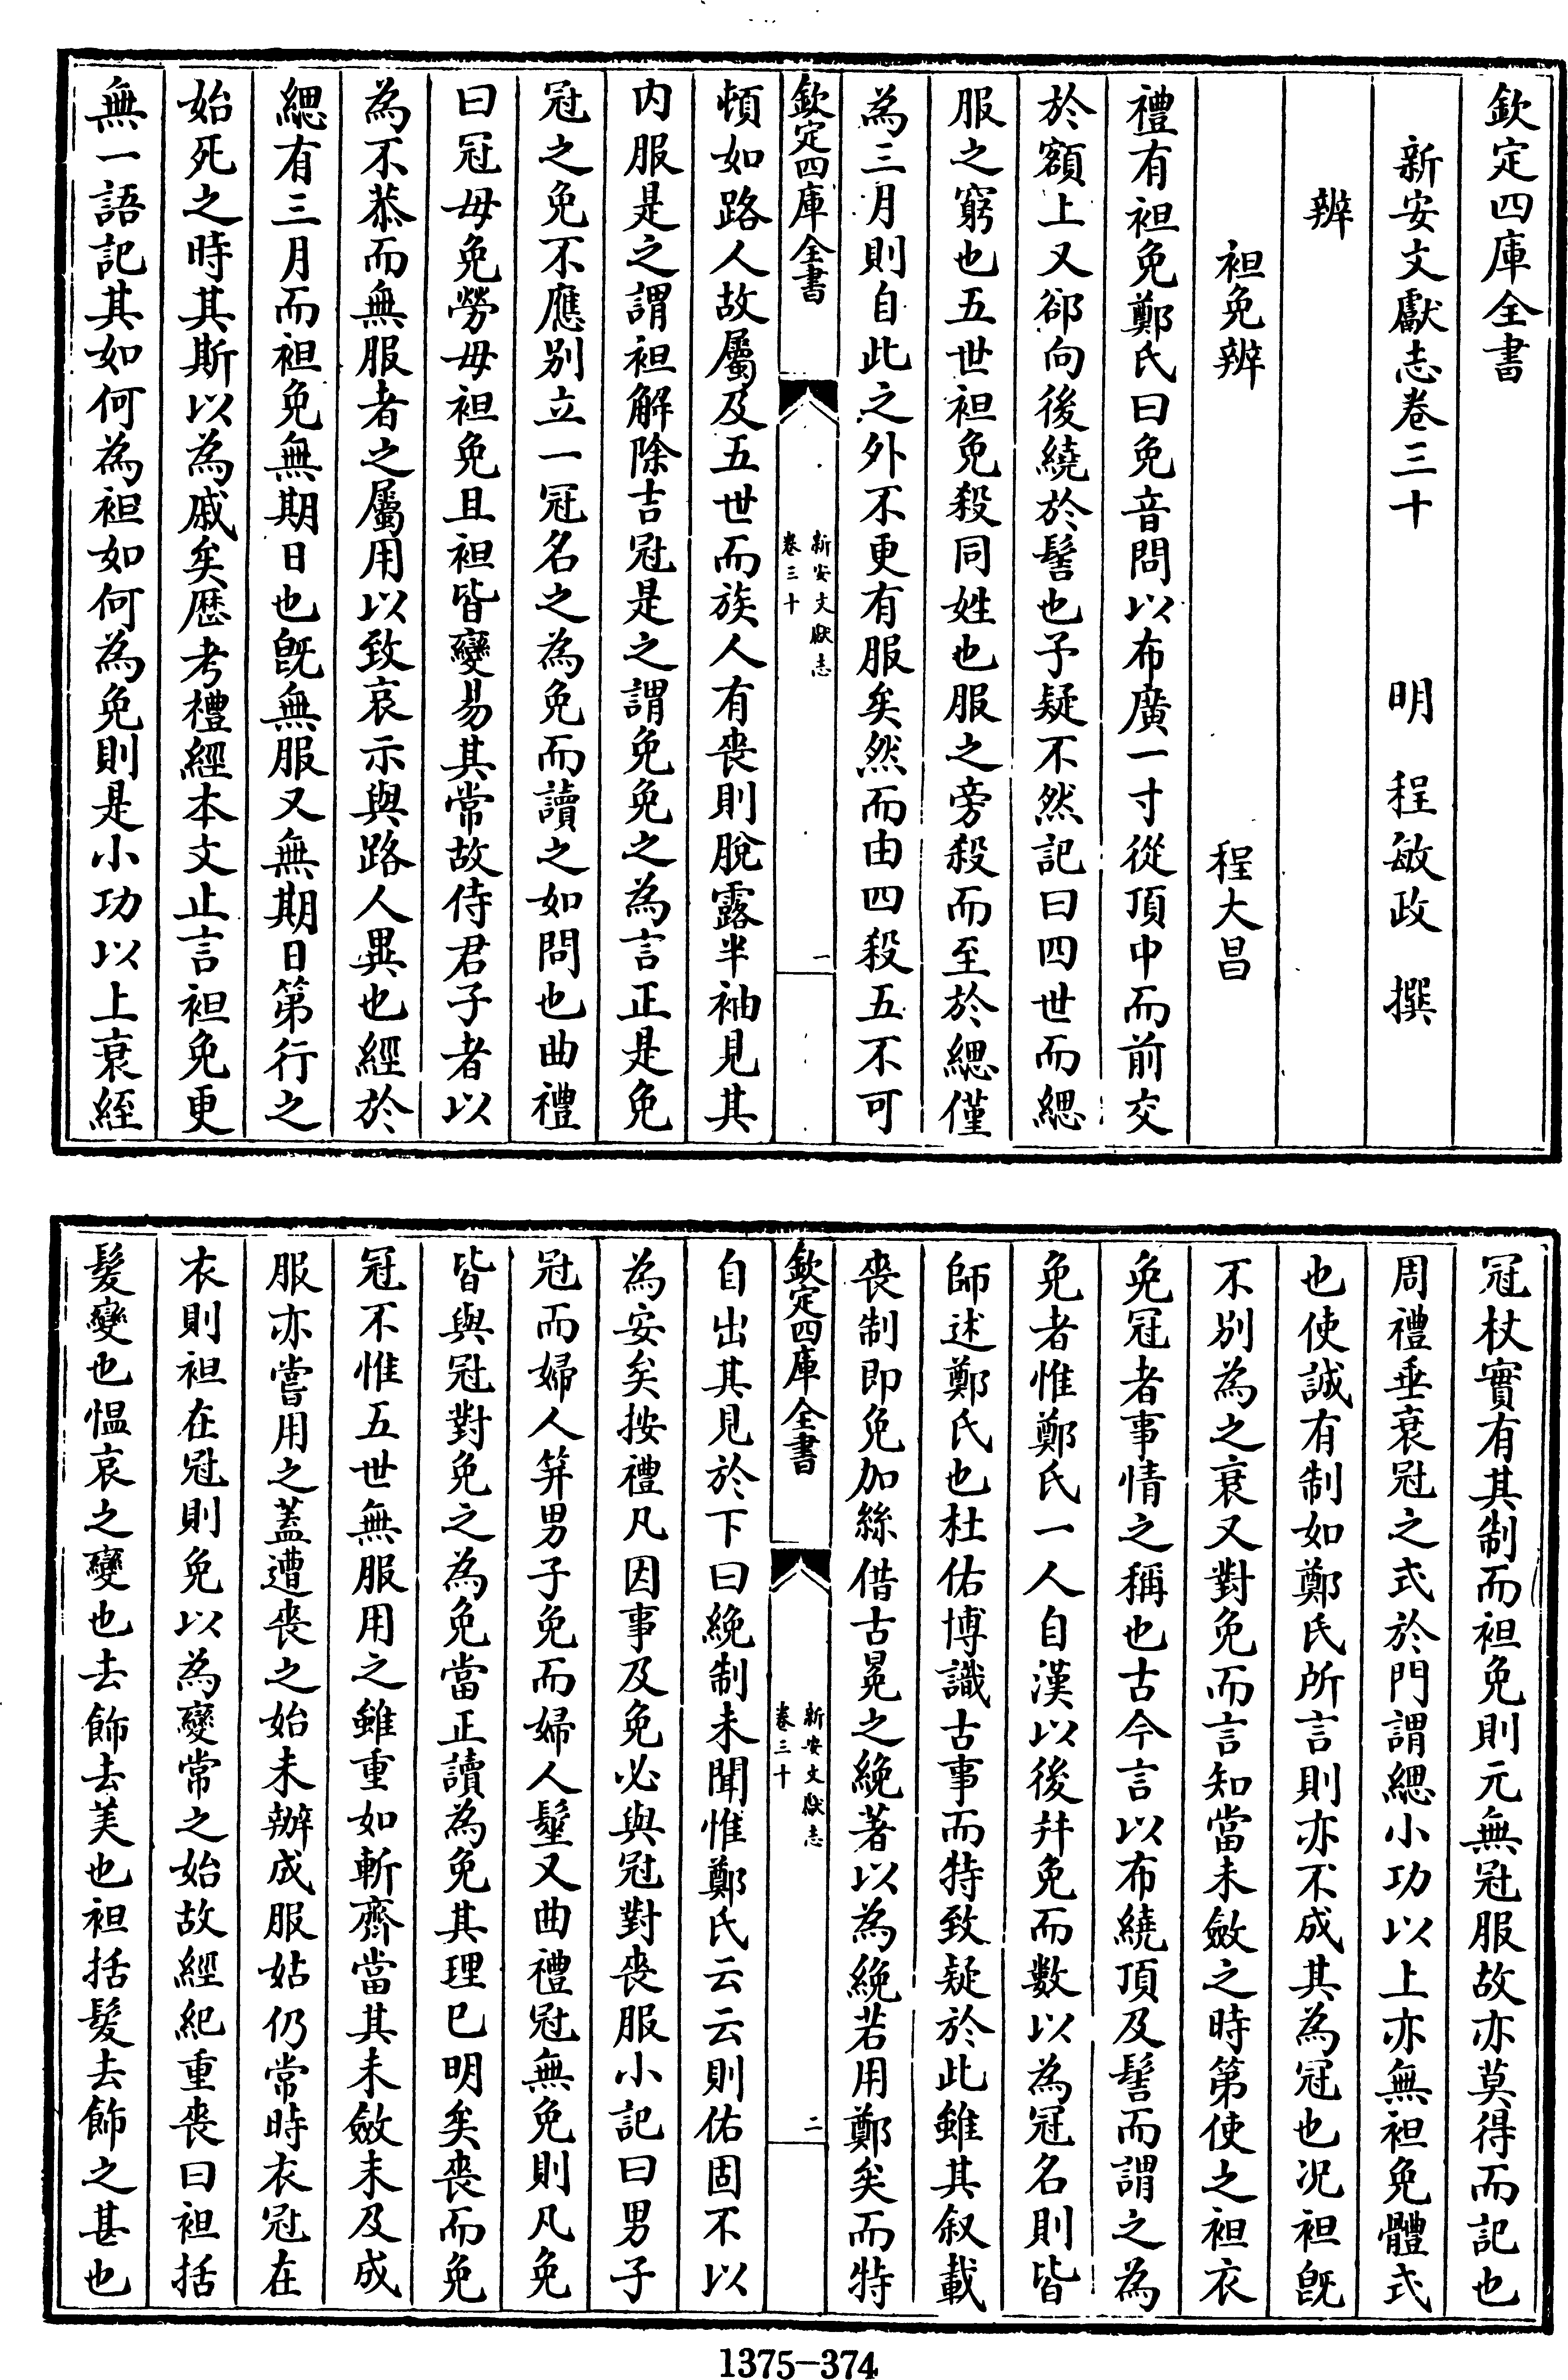 欽定四庫全書
新安文獻志卷三十　明　程敏政　撰
辨
袒免辨　程大昌
禮有袒免鄭氏曰免音問以布廣一寸從頂中而前交
於額上又郤向後繞於髻也予疑不然記曰四世而緦
服之窮也五世袒免殺同姓也服之旁殺而至於緦僅
為三月則自此之外不更有服矣然而由四殺五不可
欽定四庫全書
新安文獻志
卷三十
一
頓如路人故屬及五世而族人有喪則脫露半袖見其
内服是之謂袒解除吉冠是之謂免免之為言正是免
冠之免不應别立一冠名之為免而讀之如問也曲禮
曰冠毋免勞毋袒免且袒皆變易其常故侍君子者以
為不恭而無服者之屬用以致哀示與路人異也經於
緦有三月而袒免無期日也旣無服又無期日第行之
始死之時其斯以為戚矣歴考禮經本文止言袒免更
無一語記其如何為袒如何為免則是小功以上衰絰
冠杖實有其制而袒免則元無冠服故亦莫得而記也
周禮垂衰冠之式於門謂緦小功以上亦無袒免體式
也使誠有制如鄭氏所言則亦不成其為冠也况袒旣
不别為之衰又對免而言知當未斂之時第使之袒衣
免冠者事情之稱也古今言以布繞頂及髻而謂之為
免者惟鄭氏一人自漢以後幷免而數以為冠名則皆
師述鄭氏也杜佑博識古事而特致疑於此雖其叙載
喪制即免加絲借古冕之絻著以為絻若用鄭矣而特
欽定四庫全書
新安文獻志
卷三十
二
自出其見於下曰絻制未聞惟鄭氏云云則佑固不以
為安矣按禮凡因事及免必與冠對喪服小記曰男子
冠而婦人筓男子免而婦人髽又曲禮冠無免則凡免
皆與冠對免之為免當正讀為免其理已明矣喪而免
冠不惟五世無服用之雖重如斬齊當其未斂未及成
服亦嘗用之蓋遭喪之始未辦成服姑仍常時衣冠在
衣則袒在冠則免以為變常之始故經紀重喪曰袒括
髮變也愠哀之變也去飾去美也袒括髮去飾之甚也
1375-374